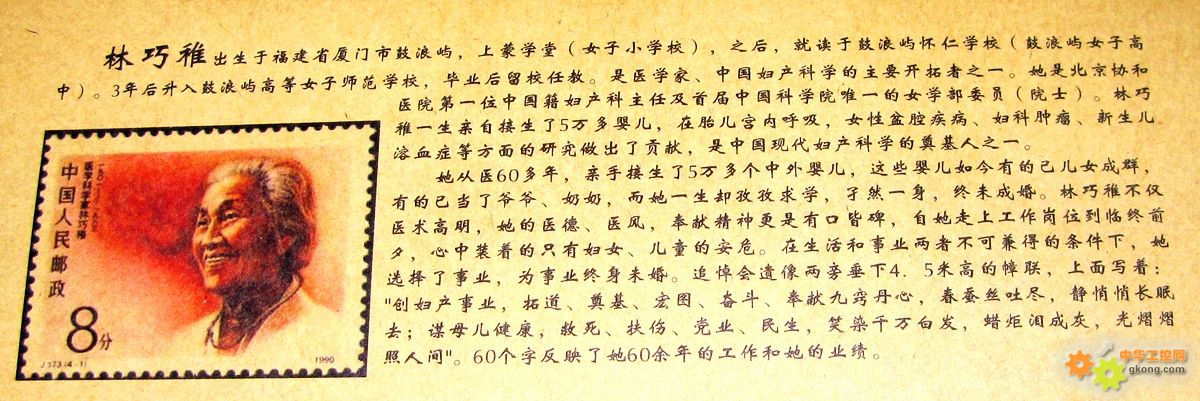 林巧稚出生于福建省厦门市鼓浪屿，上蒙学堂（女子小学校），之后，就读于鼓浪屿怀仁学校（鼓浪屿女子高
中）。3年后升入鼓浪屿高等女子师范学校，毕业后留校任教。是医学家、中国妇产科学的主要开拓者之一。她是北京协和
医院第一位中国籍妇产科主任及首届中国科学院唯一的女学部委员（院士）。林巧
稚一生亲自接生了5万多婴儿，在胎儿宫内呼吸，女性盆腔疾病、妇科肿瘤、新生儿
溶血症等方面的研究做出了贡献，是中国现代妇产科学的奠基人之一。
她从医60多年，亲手接生了5万多个中外婴儿，这些婴儿如今有的已儿女成群，
有的已当了爷爷、奶奶，而她一生却孜孜求学，孑然一身，终未成婚。林巧稚不仅
医术高明，她的医德、医风，奉献精神更是有口皆碑，自她走上工作岗位到临终前
夕，心中装着的只有妇女、儿童的安危。在生活和事业两者不可兼得的条件下，她
选择了事业，为事业终身未婚。追悼会遗像两旁垂下4．5米高的幛联，上面写着：
"创妇产事业，拓道、奠基、宏图、奋斗、奉献九窍丹心，春蚕丝吐尽，静悄悄长眠
去；谋母儿健康，救死、扶伤、党业、民生，笑染千万白发，蜡炬泪成灰，光熠熠
照人间"。60个字反映了她60余年的工作和她的业绩。
中国人民邮政
医学科学家林巧稚
8分
J.173.(4-1)
1990
中华工控网
gkong.com